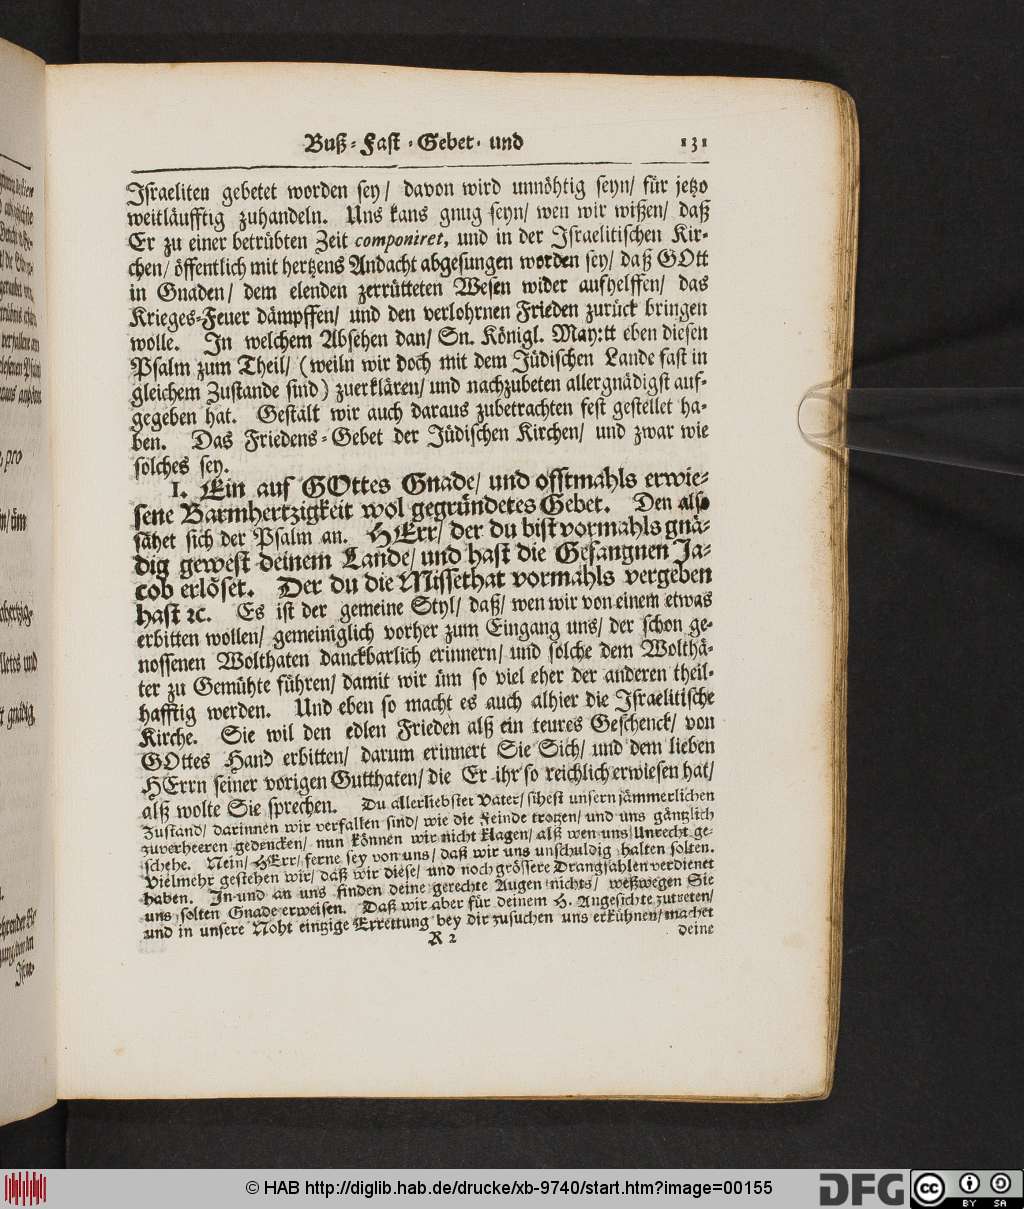 Buß-Fast-Gebet- und 131
Israeliten gebetet worden sey/ davon wird unnöhtig seyn/ für jetzo
weitläufftig zuhandeln. Uns kans gnug seyn/ wen wir wißen/ daß
Er zu einer betrübten Zeit componiret, und in der Israelitischen Kir-
chen/ öffentlich mit hertzens Andacht abgesungen worden sey/ daß GOtt
in Gnaden/ dem elenden zerrütteten Wesen wider aufhelffen/ das
Krieges-Feuer dämpffen/ und den verlohrnen Frieden zurück bringen
wolle. In welchem Absehen dan/ Sn. Königl. May:tt eben diesen
Psalm zum Theil/ (weiln wir doch mit dem Jüdischen Lande fast in
gleichem Zustande sind) zuerklären/ und nachzubeten allergnädigst auf-
gegeben hat. Gestalt wir auch daraus zubetrachten fest gestellet ha-
ben. Das Friedens-Gebet der Jüdischen Kirchen/ und zwar wie
solches sey.
I. Ein auf GOttes Gnade/ und offtmahls erwie-
sene Barmhertzigkeit wol gegründetes Gebet. Den also
fähet sich der Psalm an. HErr/ der du bist vormahls gnä-
dig gewest deinem Lande/ und hast die Gefangnen Ja-
cob erlöset. Der du die Missethat vormahls vergeben
hast ꝛc. Es ist der gemeine Styl/ daß/ wen wir von einem etwas
erbitten wollen/ gemeiniglich vorher zum Eingang uns/ der schon ge-
nossenen Wolthaten danckbarlich erinnern/ und solche dem Wolthä-
ter zu Gemühte führen/ damit wir üm so viel eher der anderen theil-
hafftig werden. Und eben so macht es auch alhier die Israelitische
Kirche. Sie wil den edlen Frieden alß ein teures Geschenck/ von
GOttes Hand erbitten/ darum erinnert Sie Sich/ und dem lieben
HErrn seiner vorigen Gutthaten/ die Er ihr so reichlich erwiesen hat/
alß wolte Sie sprechen. Du allerliebster Vater/ sihest unsern jämmerlichen
Zustand/ darinnen wir verfallen sind/ wie die Feinde trotzen/ und uns gäntzlich
zuverheeren gedencken/ nun können wir nicht klagen/ alß wen uns Unrecht ge-
schehe. Nein/ HErr/ ferne sey von uns/ daß wir uns unschuldig halten solten.
Vielmehr gestehen wir/ daß wir diese/ und noch grössere Drangsahlen verdienet
haben. In und an uns finden deine gerechte Augen nichts/ weßwegen Sie
uns solten Gnade erweisen. Daß wir aber für deinem H. Angesichte zutreten/
und in unsere Noht eintzige Errettung bey dir zusuchen uns erkühnen/ machet
R 2 deine
© HAB http://diglib.hab.de/drucke/xb-9740/start.htm?image=00155
DFG
cc BY SA